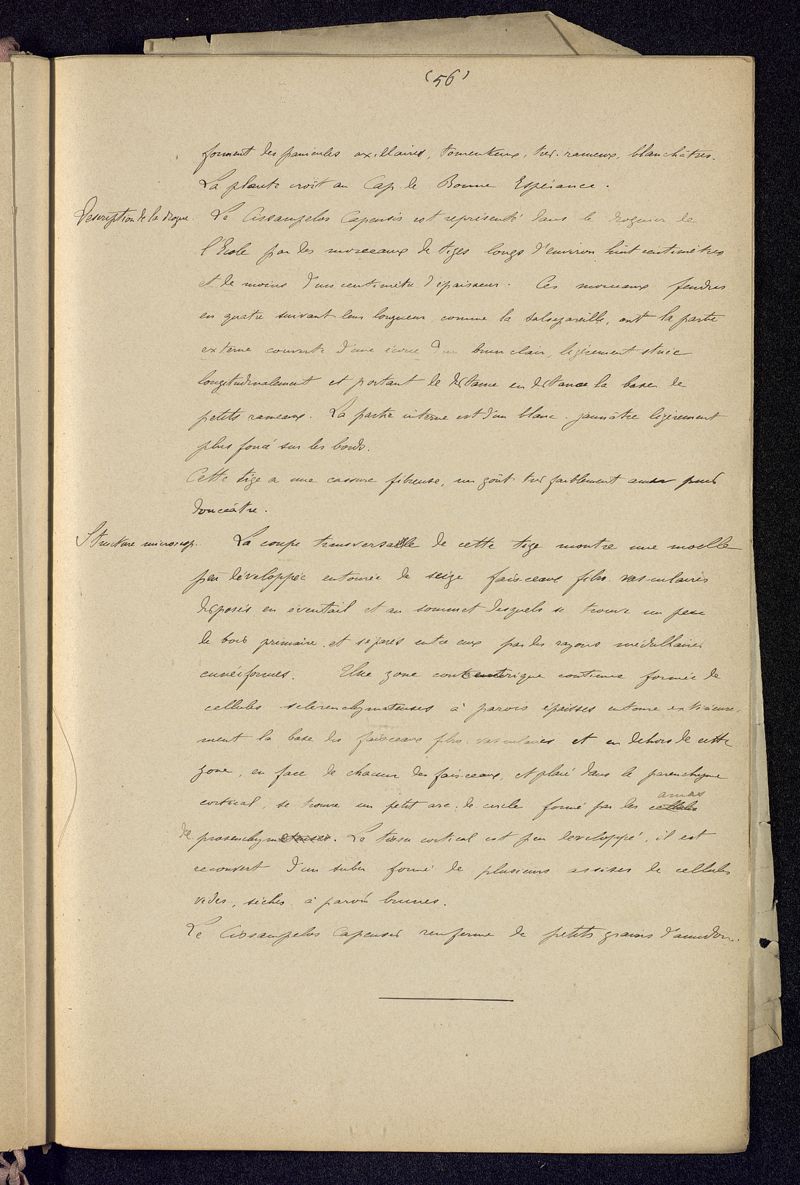 (56)
forment des panicules axillaires, tomenteux, très rameux, blanchâtres.
La plante croit au Cap de Bonne Espérance.
Description de la drogue. Le Cissampelos Capensis est représenté dans le droguier de
l'Ecole par des morceaux de tiges longs d'environ huit centimètres
et de moins d'un centimètre d'épaisseur. Ces morceaux fendus
en quatre suivant leur longueur comme la Salsepareille, ont la partie
externe couverte d'une écorce d'un brun clair, légèrement striée
longitudinalement et portant de distance en distance la base de
petits rameaux. La partie interne est d'un blanc jaunâtre légèrement
plus foncé sur les bords.
Cette tige a une cassure fibreuse, un goût très faiblement amer puis
douceâtre.
Structure microscop. La coupe transversale de cette tige montre une moelle
peu développée entourée de seize faisceaux fibro vasculaires
disposés en éventail et au sommet desquels se trouve un peu
de bois primaire et séparés entre eux par des rayons médullaires
cunéiformes. Une zone concentrique continue formée de
cellules sclérenchymateuses à parois épaisses entoure extérieure-
ment la base des faisceaux fibro vasculaires et en dehors de cette
zone, en face de chacun des faisceaux, et placé dans le parenchyme
cortical, se trouve un petit arc de cercle formé par des cellules amas
de prosenchymateuses. Le tissu cortical est peu développé, il est
recouvert d'un suber formé de plusieurs assises de cellules
vides, sèches à parois brunes.
Le Cissampelos Capensis renferme de petits grains d'amidon.